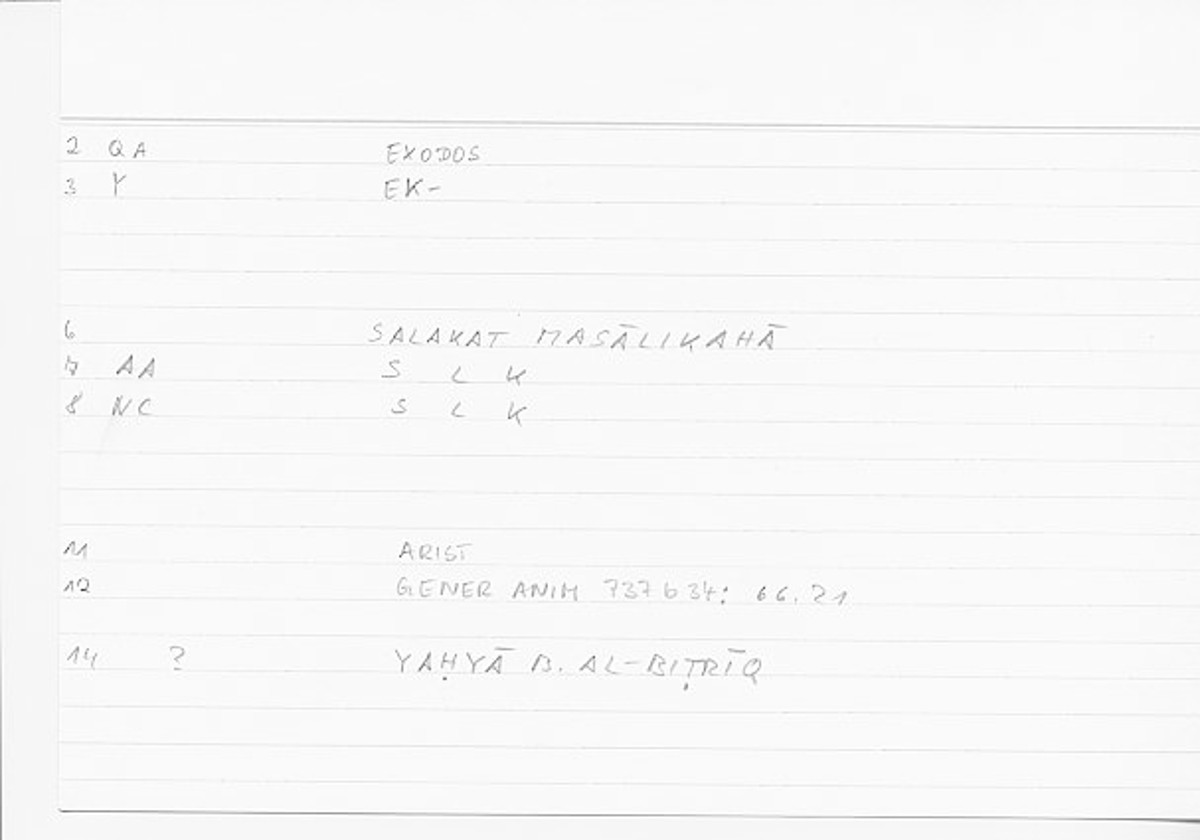 2 QA EXODOS
3 Y EK-
6 SALAKAT MASĀLIKAHĀ
7 AA S L K
8 NC S L K
11 ARIST
12 GENER ANIM 737 b 34: 66.21
14 ? YAḤYĀ B. AL-BIṬRĪQ